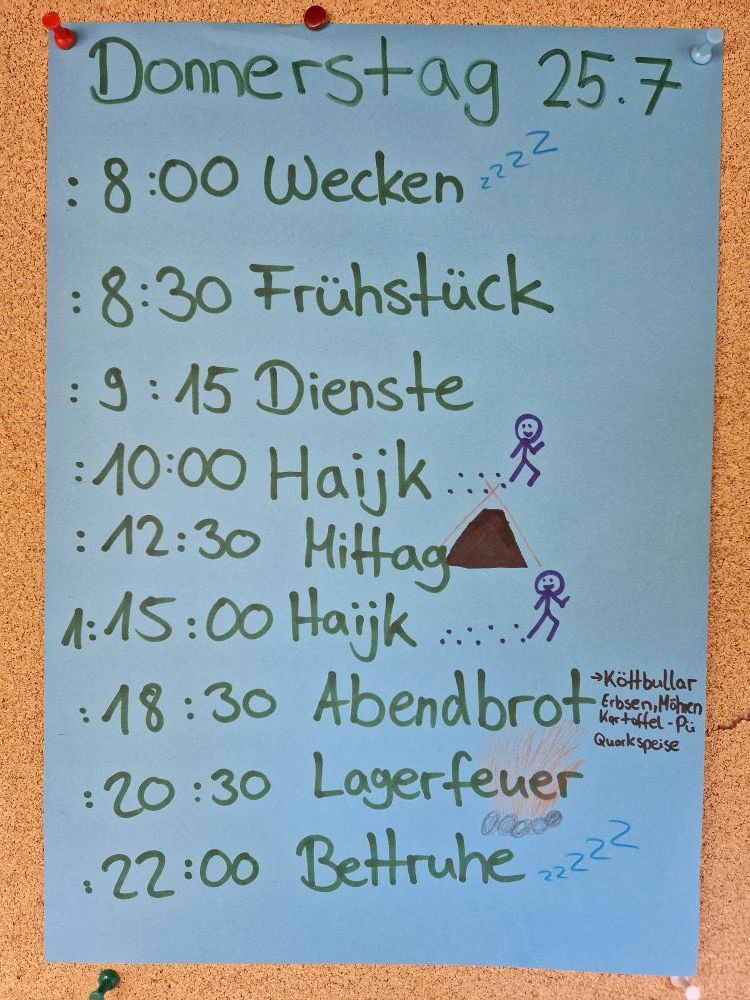 Donnerstag 25.7
: 8:00 Wecken zzzz
: 8:30 Frühstück
: 9:15 Dienste
: 10:00 Haijk
: 12:30 Mittag
1: 15:00 Haijk
: 18:30 Abendbrot → Köttbullar
Erbsen, Möhren
Kartoffel-Pü
Quarkspeise
: 20:30 Lagerfeuer
: 22:00 Bettruhe zzzzz